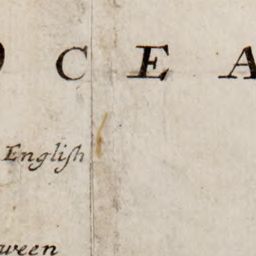 O C E A
Engliſh
ween